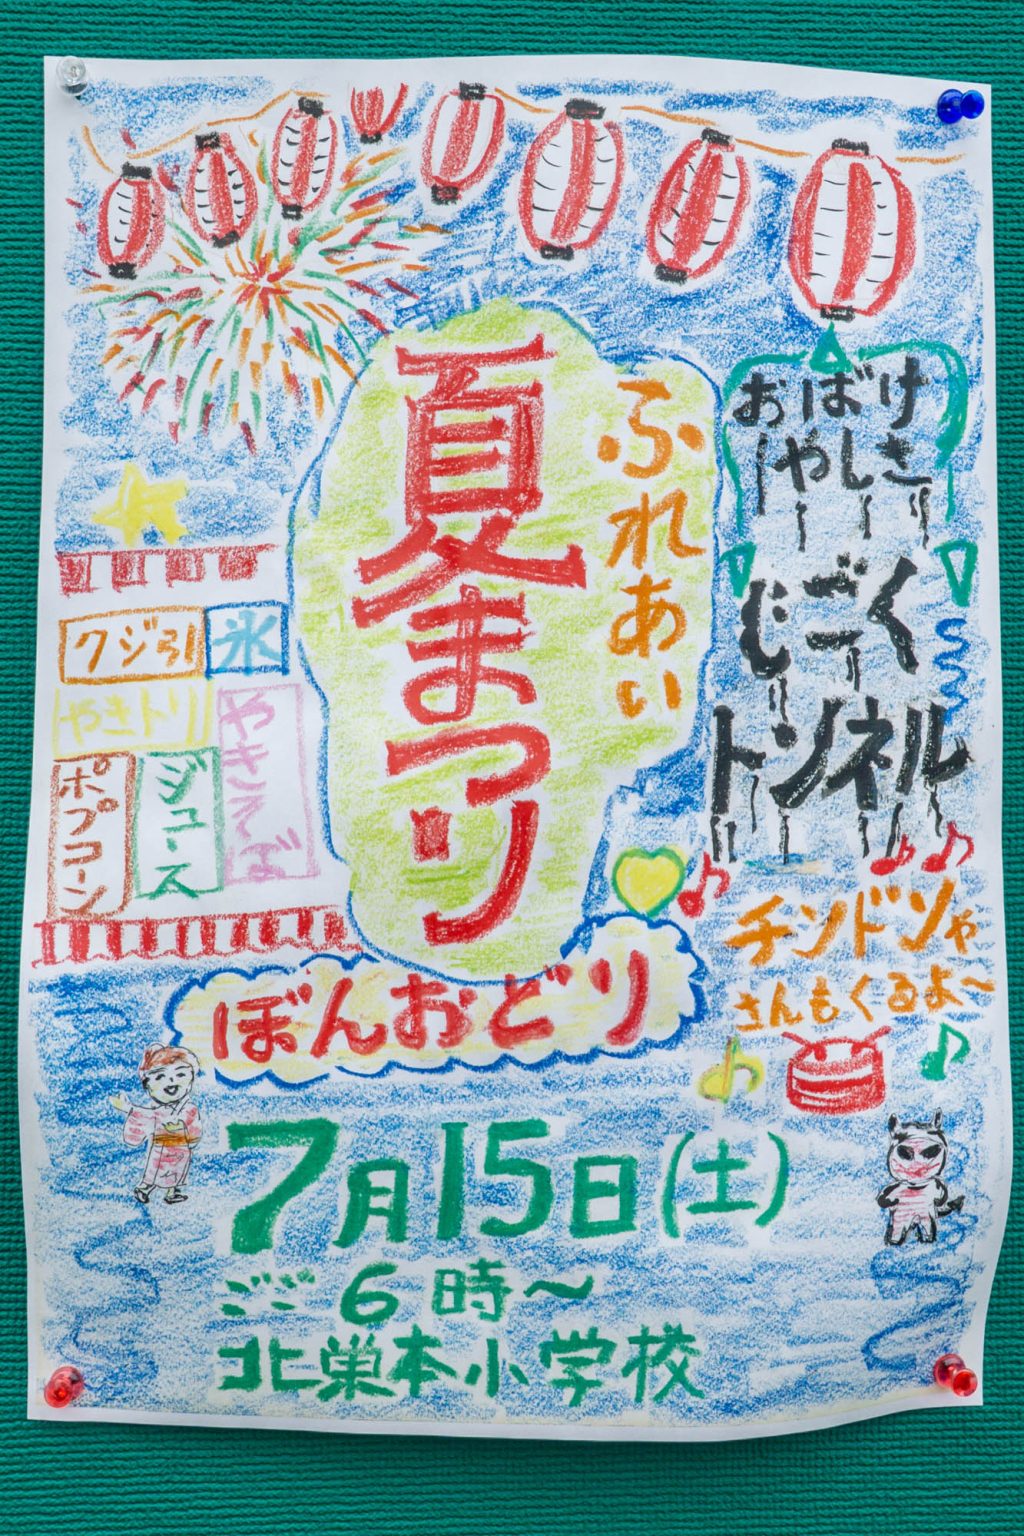 ふれあい
夏まつり
おばけ
やしき
じごく
トンネル
クジ引
氷
やきトリ
やきそば
ジュース
ポプコーン
チンドンや
さんもくるよ〜
ぼんおどり
7月15日(土)
ごご6時〜
北巣本小学校